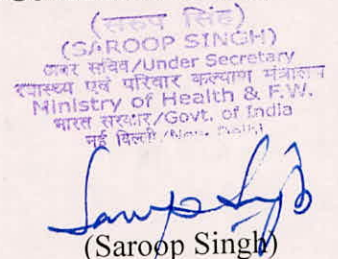 (सरूप सिंह)
(SAROOP SINGH)
अवर सचिव/Under Secretary
स्वास्थ्य एवं परिवार कल्याण मंत्रालय
Ministry of Health & F.W.
भारत सरकार/Govt. of India
नई दिल्ली/New Delhi
(Saroop Singh)